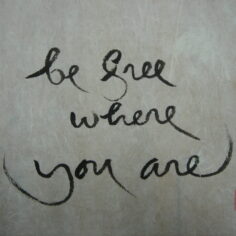 be free
where
you are